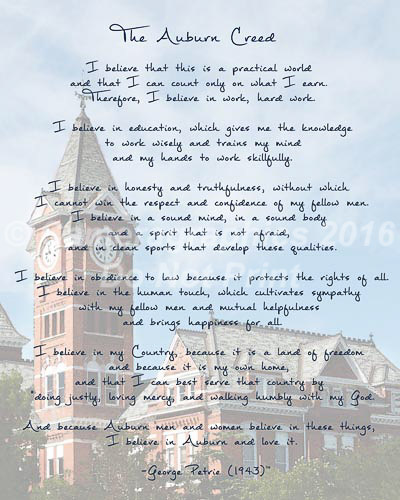 The Auburn Creed
I believe that this is a practical world
and that I can count only on what I earn.
Therefore, I believe in work, hard work.
I believe in education, which gives me the knowledge
to work wisely and trains my mind
and my hands to work skillfully.
I believe in honesty and truthfulness, without which
I cannot win the respect and confidence of my fellow men.
I believe in a sound mind, in a sound body
and a spirit that is not afraid,
and in clean sports that develop these qualities.
I believe in obedience to law because it protects the rights of all.
I believe in the human touch, which cultivates sympathy
with my fellow men and mutual helpfulness
and brings happiness for all.
I believe in my Country, because it is a land of freedom
and because it is my own home,
and that I can best serve that country by
"doing justly, loving mercy, and walking humbly with my God."
And because Auburn men and women believe in these things,
I believe in Auburn and love it.
-George Petrie (1943)™
© 2016